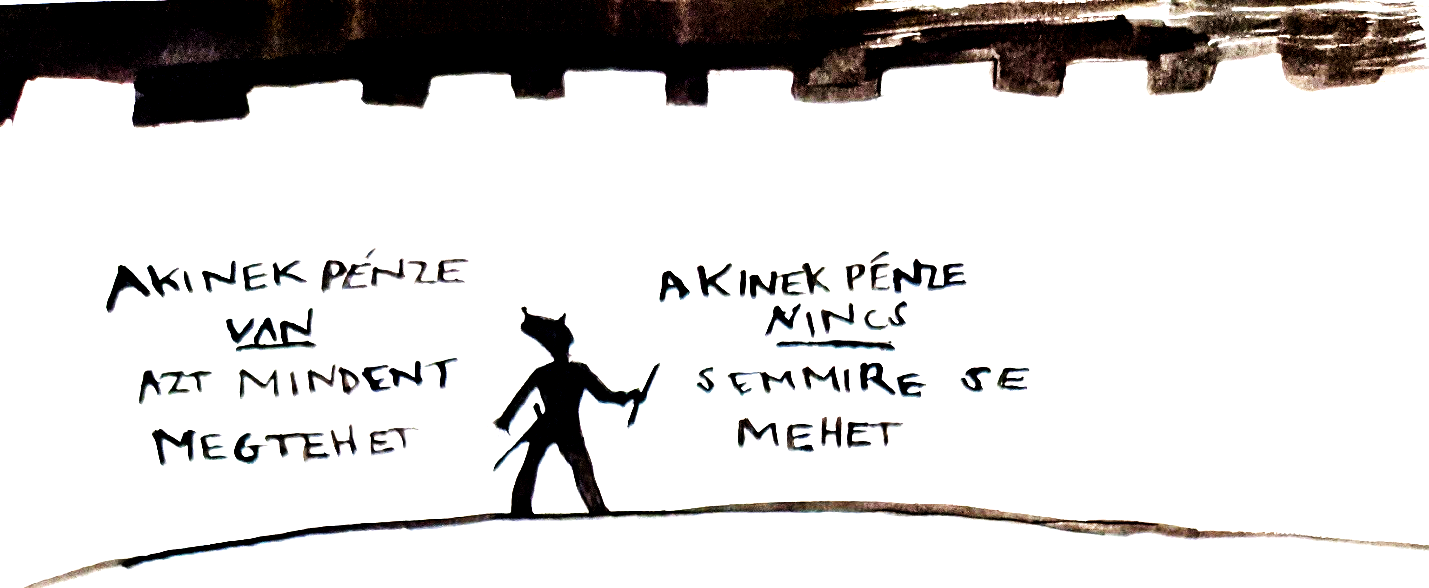 AKINEK PÉNZE
VAN
AZT MINDENT
MEGTEHET
AKINEK PÉNZE
NINCS
SEMMIRE SE
MEHET